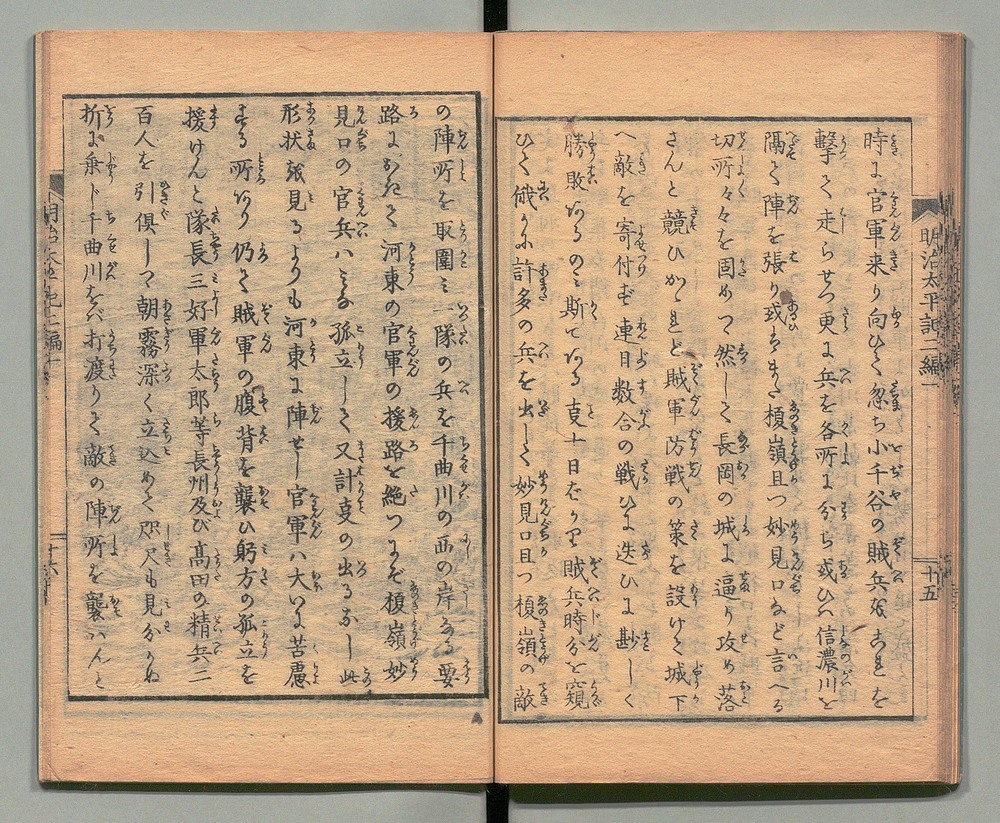 時に官軍来り向ひて忽ち小千谷の賊兵をこれを
擊て走らせつ更に兵を各所に分ち或ひハ信濃川を
隔て陣を張り或ひまた榎嶺且つ妙見口など言へる
切所々々を固めつ然して長岡の城に逼り攻め落
さんと競ひかゝれど賊軍防戦の策を設けて城下
へ敵を寄付ず連日数合の戦ひに迭ひに尠しく
勝敗あるのミ斯てある叓十日ばかり賊兵時分を窺
ひて俄かに許多の兵を出して妙見口且つ榎嶺の敵
明治太平記二編一
十五
の陣所を取圍ミ一隊の兵を千曲川の西の岸なる要
路にわかちて河東の官軍の援路を絶つにぞ榎嶺妙
見口の官兵ハミな孤立して又計叓の出るなし此
形状を見るよりも河東に陣せし官軍ハ大いに苦慮
する所あり仍て賊軍の腹背を襲ひ躬方の孤立を
援けんと隊長三好軍太郎等長州及び高田の精兵二
百人を引俱しつ朝霧深く立込めて咫尺も見分かぬ
折に乗じ千曲川をバ打渡りて敵の陣所を襲ハんと
十六